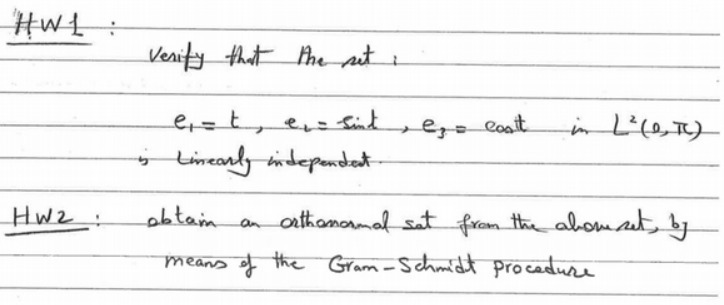 HW1 :
Verify that the set :
e₁ = t , e₂ = sint , e₃ = cost in L²(0, π)
is Linearly independent.
HW2 : obtain an orthonormal set from the above set, by
means of the Gram-Schmidt procedure